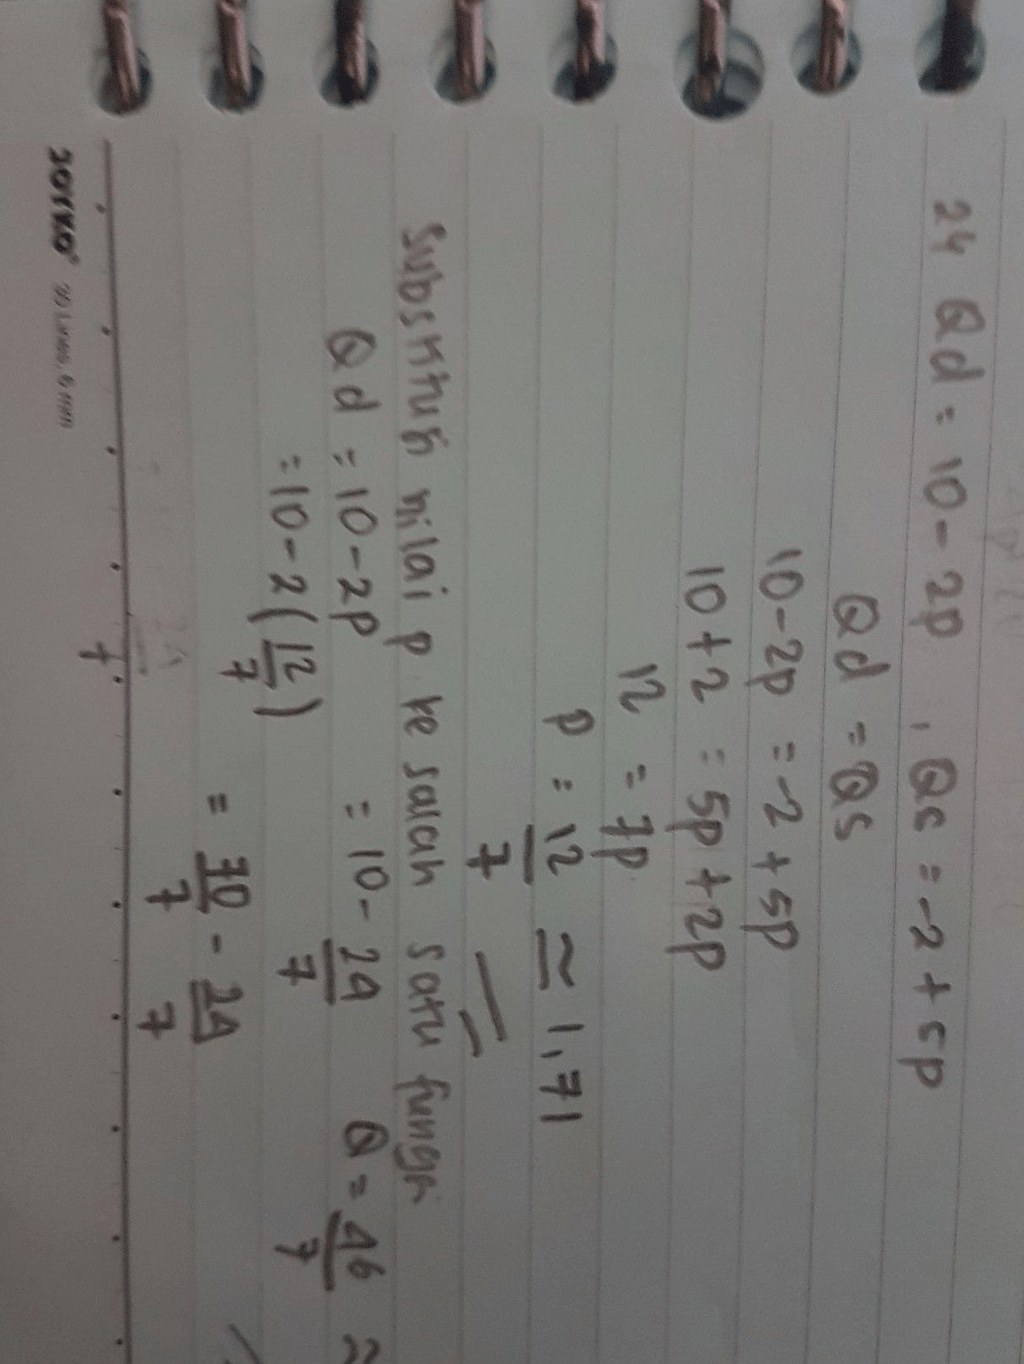 24 Qd = 10 - 2p , Qs = -2 + 5p
Qd = Qs
10 - 2p = -2 + 5p
10 + 2 = 5p + 2p
12 = 7p
p = 12/7 ≃ 1,71
Subsktusi nilai p ke salah satu fungsi
Qd = 10 - 2p = 10 - 24/7 Q = 46/7 ≈
= 10 - 2(12/7)
= 70/7 - 24/7
JOYKO 30 Lines, 6 mm